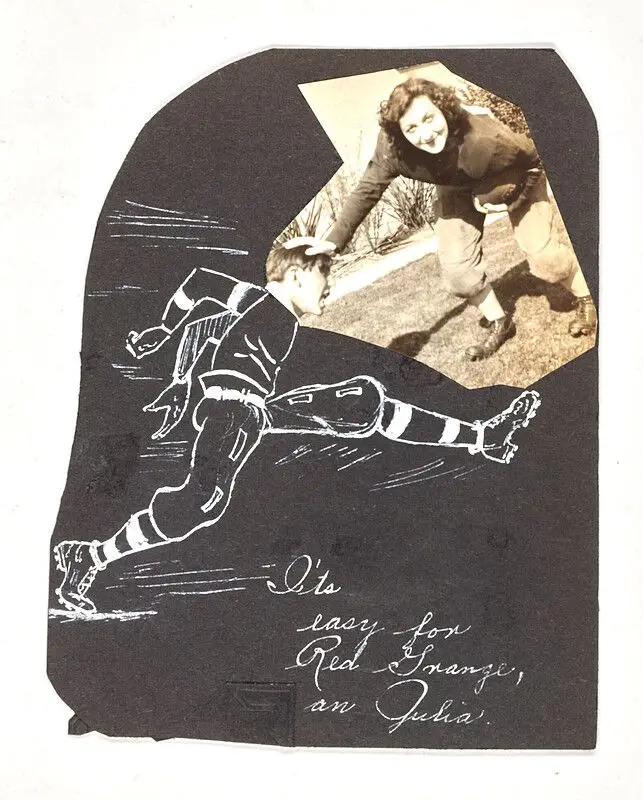 It's
easy for
Red Grange,
an Julia.